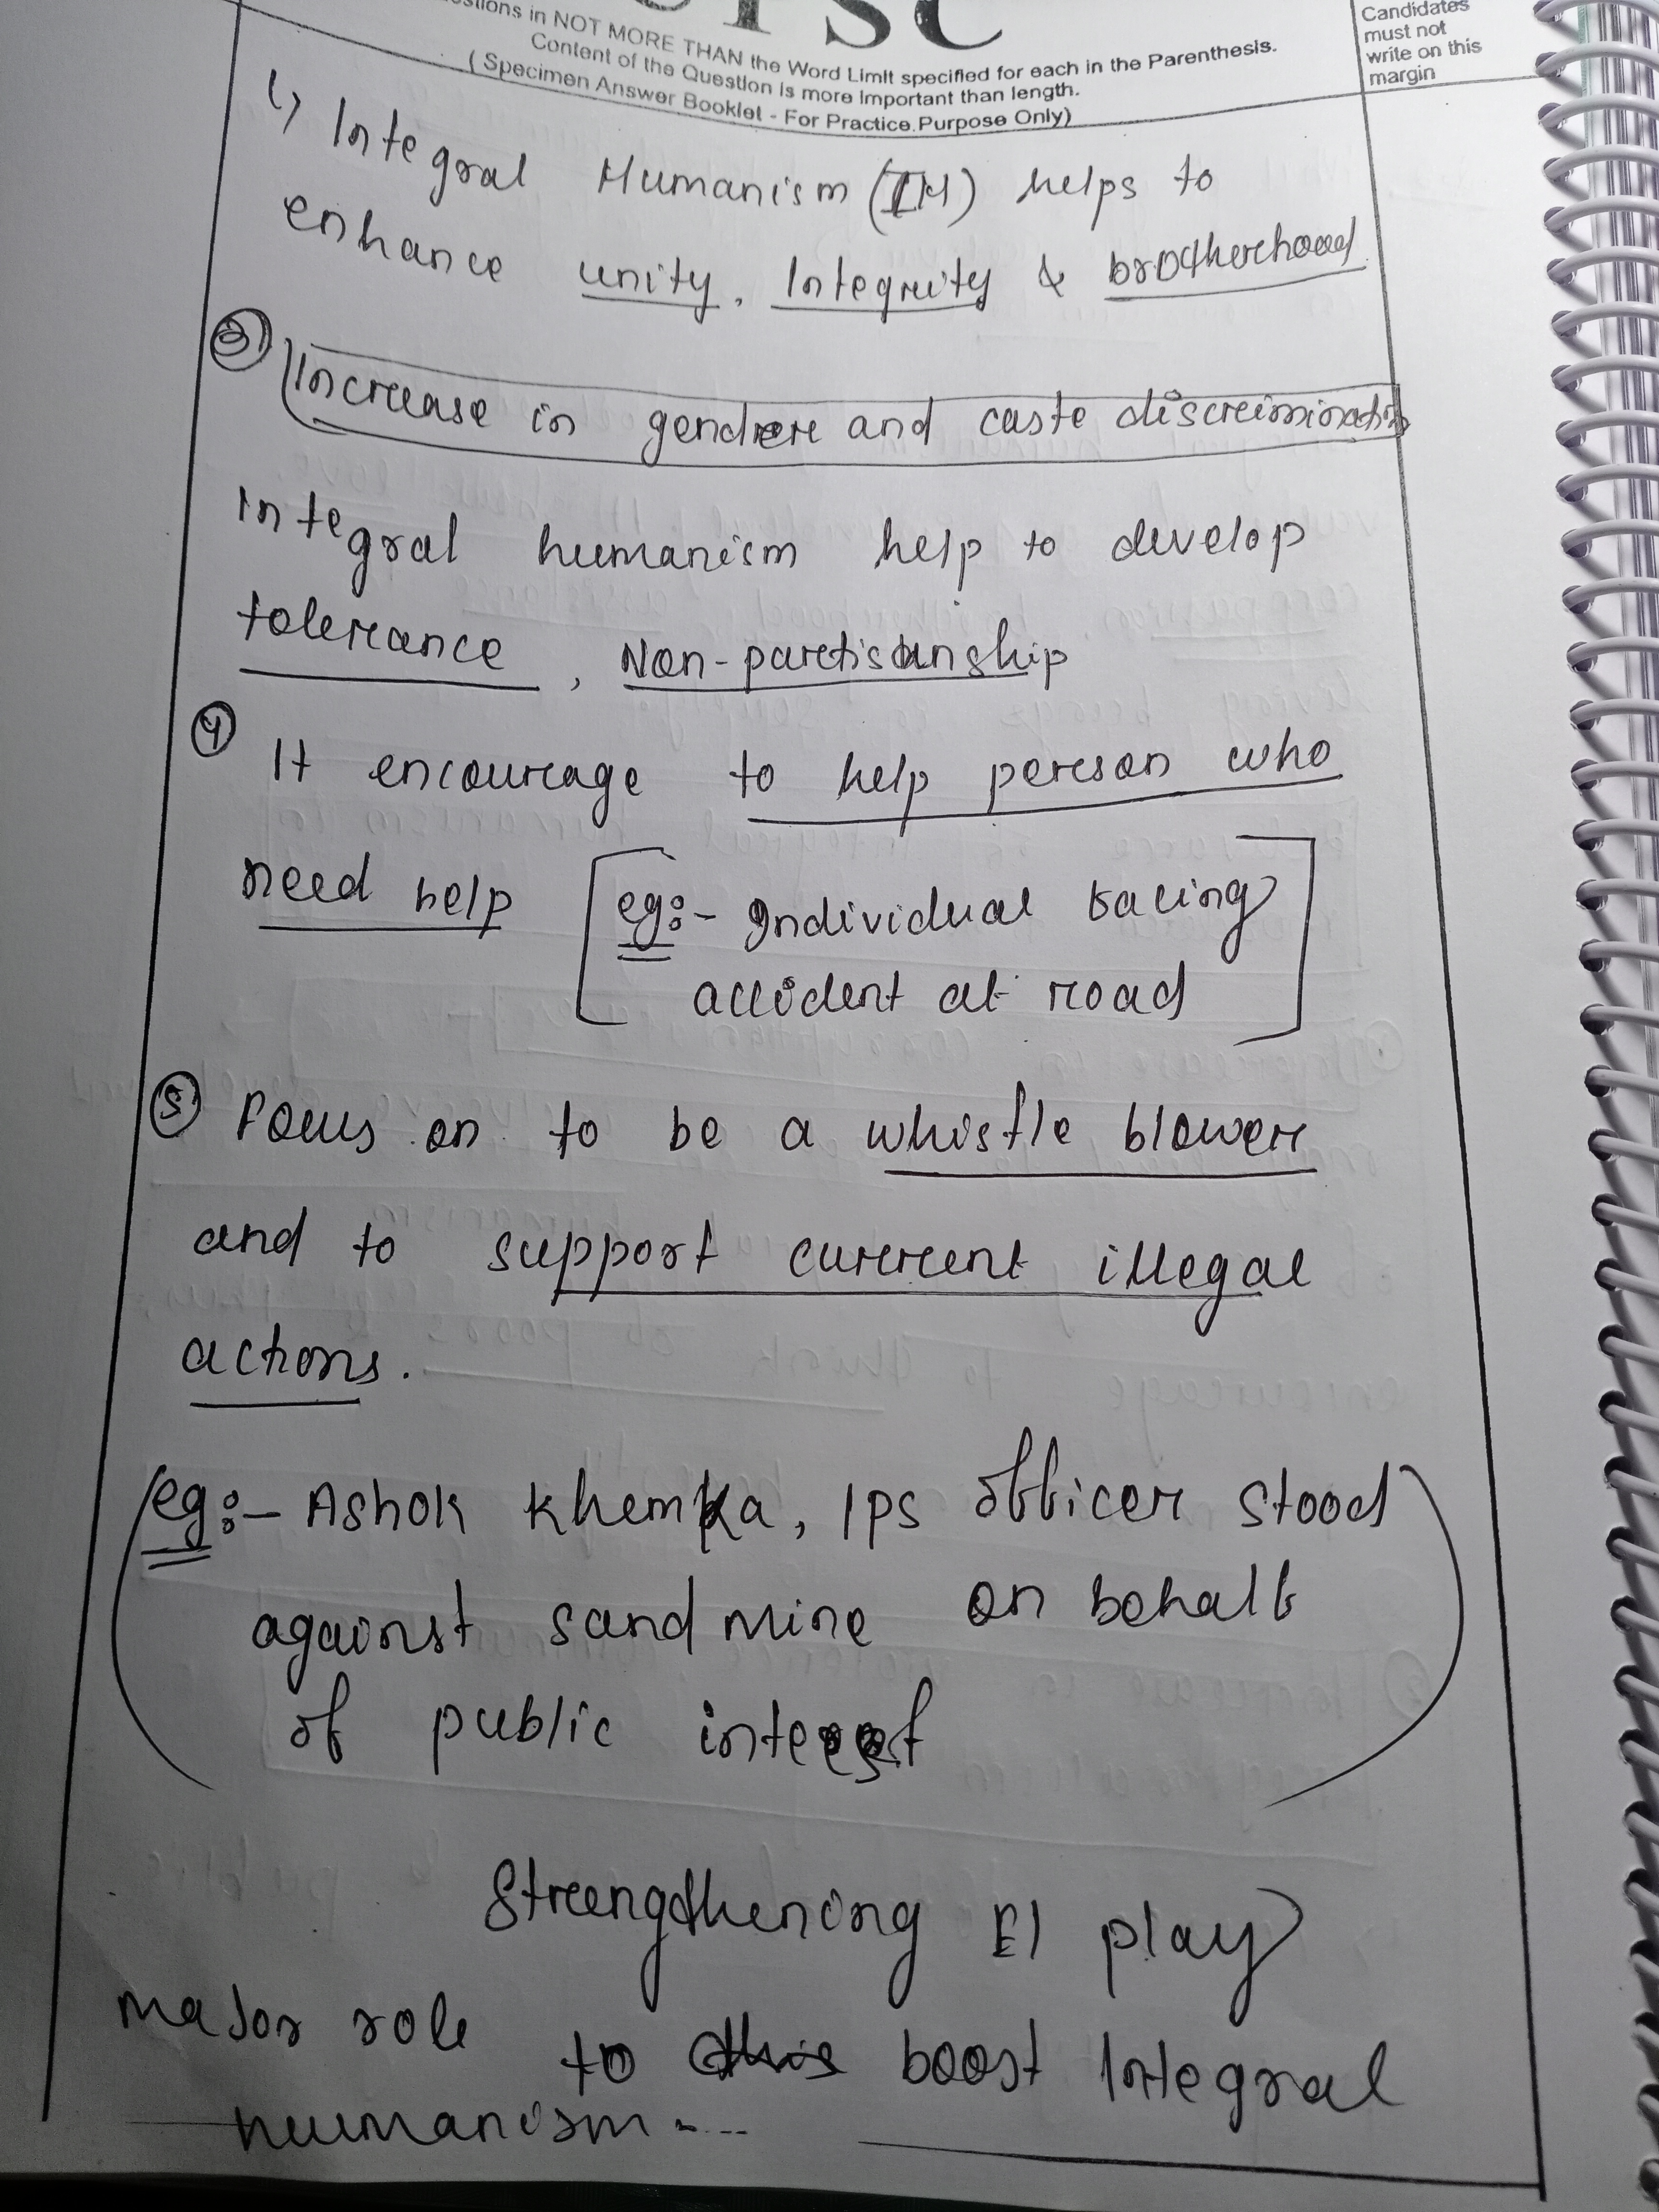 UPSC
estions in NOT MORE THAN the Word Limit specified for each in the Parenthesis.
Content of the Question is more Important than length.
(Specimen Answer Booklet - For Practice Purpose Only)
Candidates
must not
write on this
margin
Integral Humanism (IH) helps to
enhance unity, Integrity & brotherhood
③ Increase in gender and caste discrimination
Integral humanism help to develop
tolerance, Non-partisanship
④ It encourage to help person who
need help [eg:- Individual facing
accident at road]
⑤ Focus on to be a whistle blower
and to support current illegal
actions.
(eg:- Ashok Khemka, IPS officer stood
against sand mine on behalf
of public interest)
Strengthening EI play
major role to boost Integral
humanism....